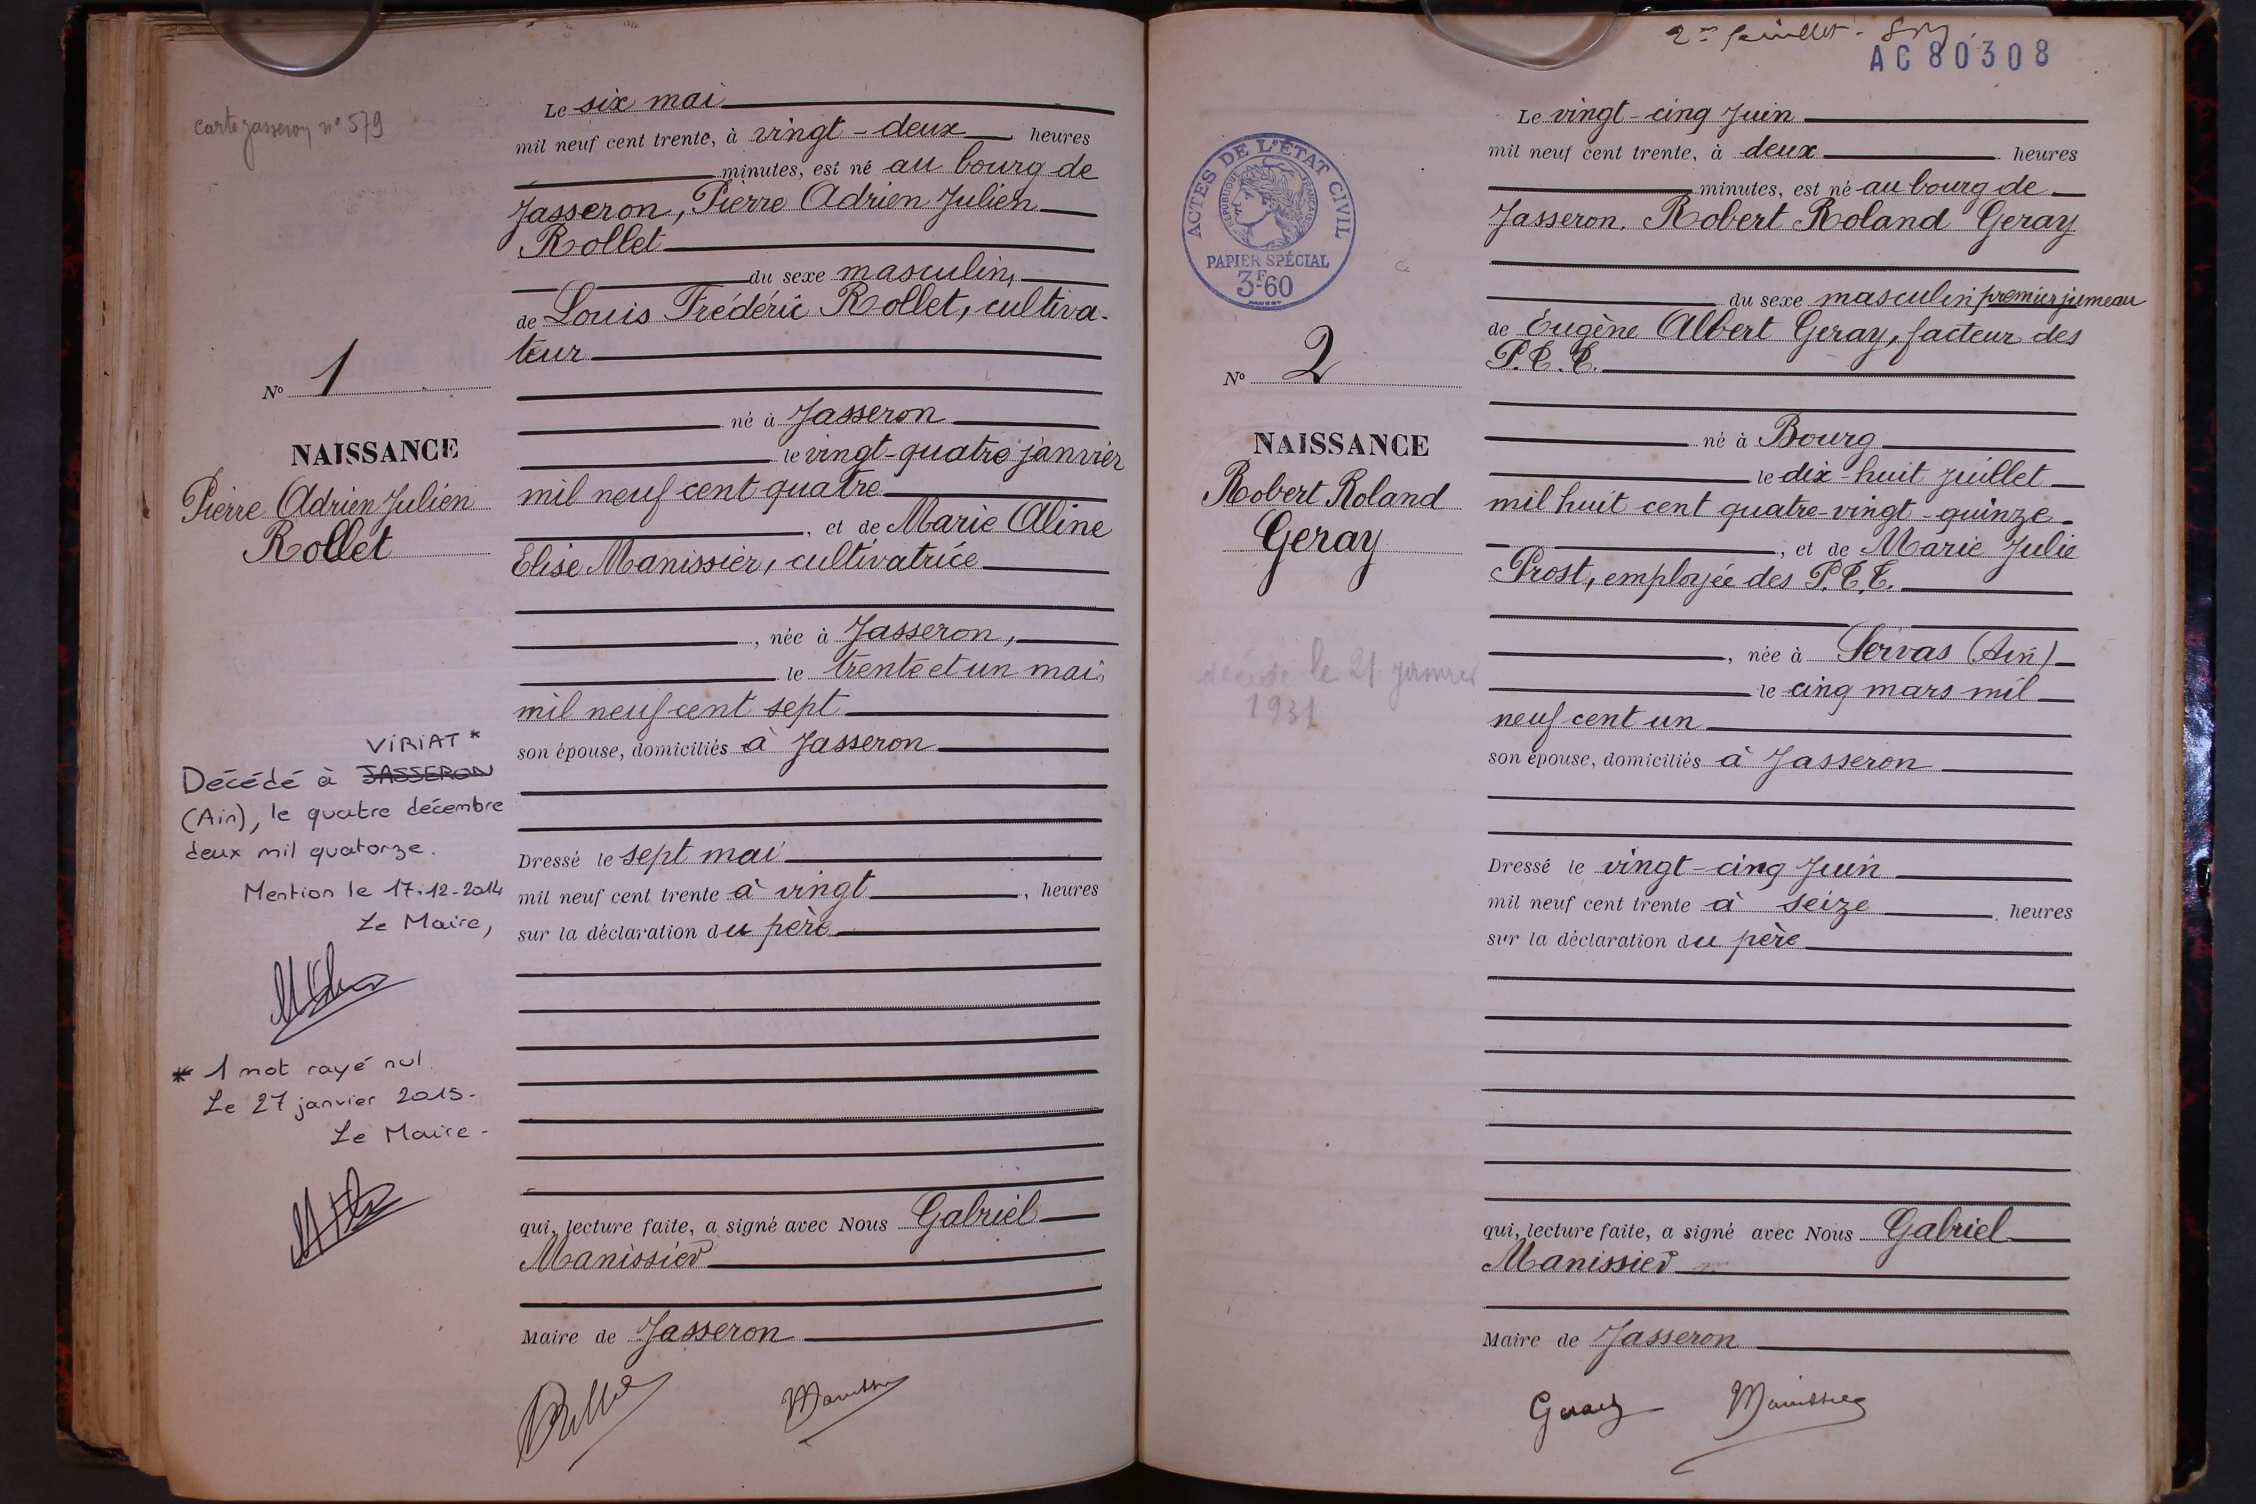 carte jasseron n° 579
Le six mai
mil neuf cent trente, à vingt-deux heures
minutes, est né au bourg de
Jasseron, Pierre Adrien Julien
Rollet
du sexe masculin,
de Louis Frédéric Rollet, cultiva-
teur
né à Jasseron
le vingt-quatre janvier
mil neuf cent quatre
, et de Marie Aline
Elise Manissier, cultivatrice
, née à Jasseron,
le trente et un mai,
mil neuf cent sept
son épouse, domiciliés à Jasseron
Dressé le sept mai
mil neuf cent trente à vingt, heures
sur la déclaration du père
qui, lecture faite, a signé avec Nous Gabriel
Manissier
Maire de Jasseron
Manissier
N° 1
NAISSANCE
Pierre Adrien Julien
Rollet
VIRIAT *
Décédé à JASSERON
(Ain), le quatre décembre
deux mil quatorze.
Mention le 17.12-2014
Le Maire,
* 1 mot rayé nul.
Le 27 janvier 2015.
Le Maire-
2me feuillet.
AC 80308
ACTES DE L'ETAT CIVIL
REPUBLIQUE FRANÇAISE
PAPIER SPÉCIAL
3F60
Le vingt-cinq Juin
mil neuf cent trente, à deux heures
minutes, est né au bourg de
Jasseron. Robert Roland Geray
du sexe masculin premier jumeau
de Eugène Albert Geray, facteur des
P.T.T.
né à Bourg
le dix-huit juillet
mil huit cent quatre-vingt-quinze
, et de Marie Julie
Prost, employée des P.T.T.
, née à Servas (Ain)
le cinq mars mil
neuf cent un
son épouse, domiciliés à Jasseron
Dressé le vingt-cinq Juin
mil neuf cent trente à seize heures
sur la déclaration du père
qui, lecture faite, a signé avec Nous Gabriel
Manissier
Maire de Jasseron
Geray Manissier
N° 2
NAISSANCE
Robert Roland
Geray
décédé le 21 janvier
1931